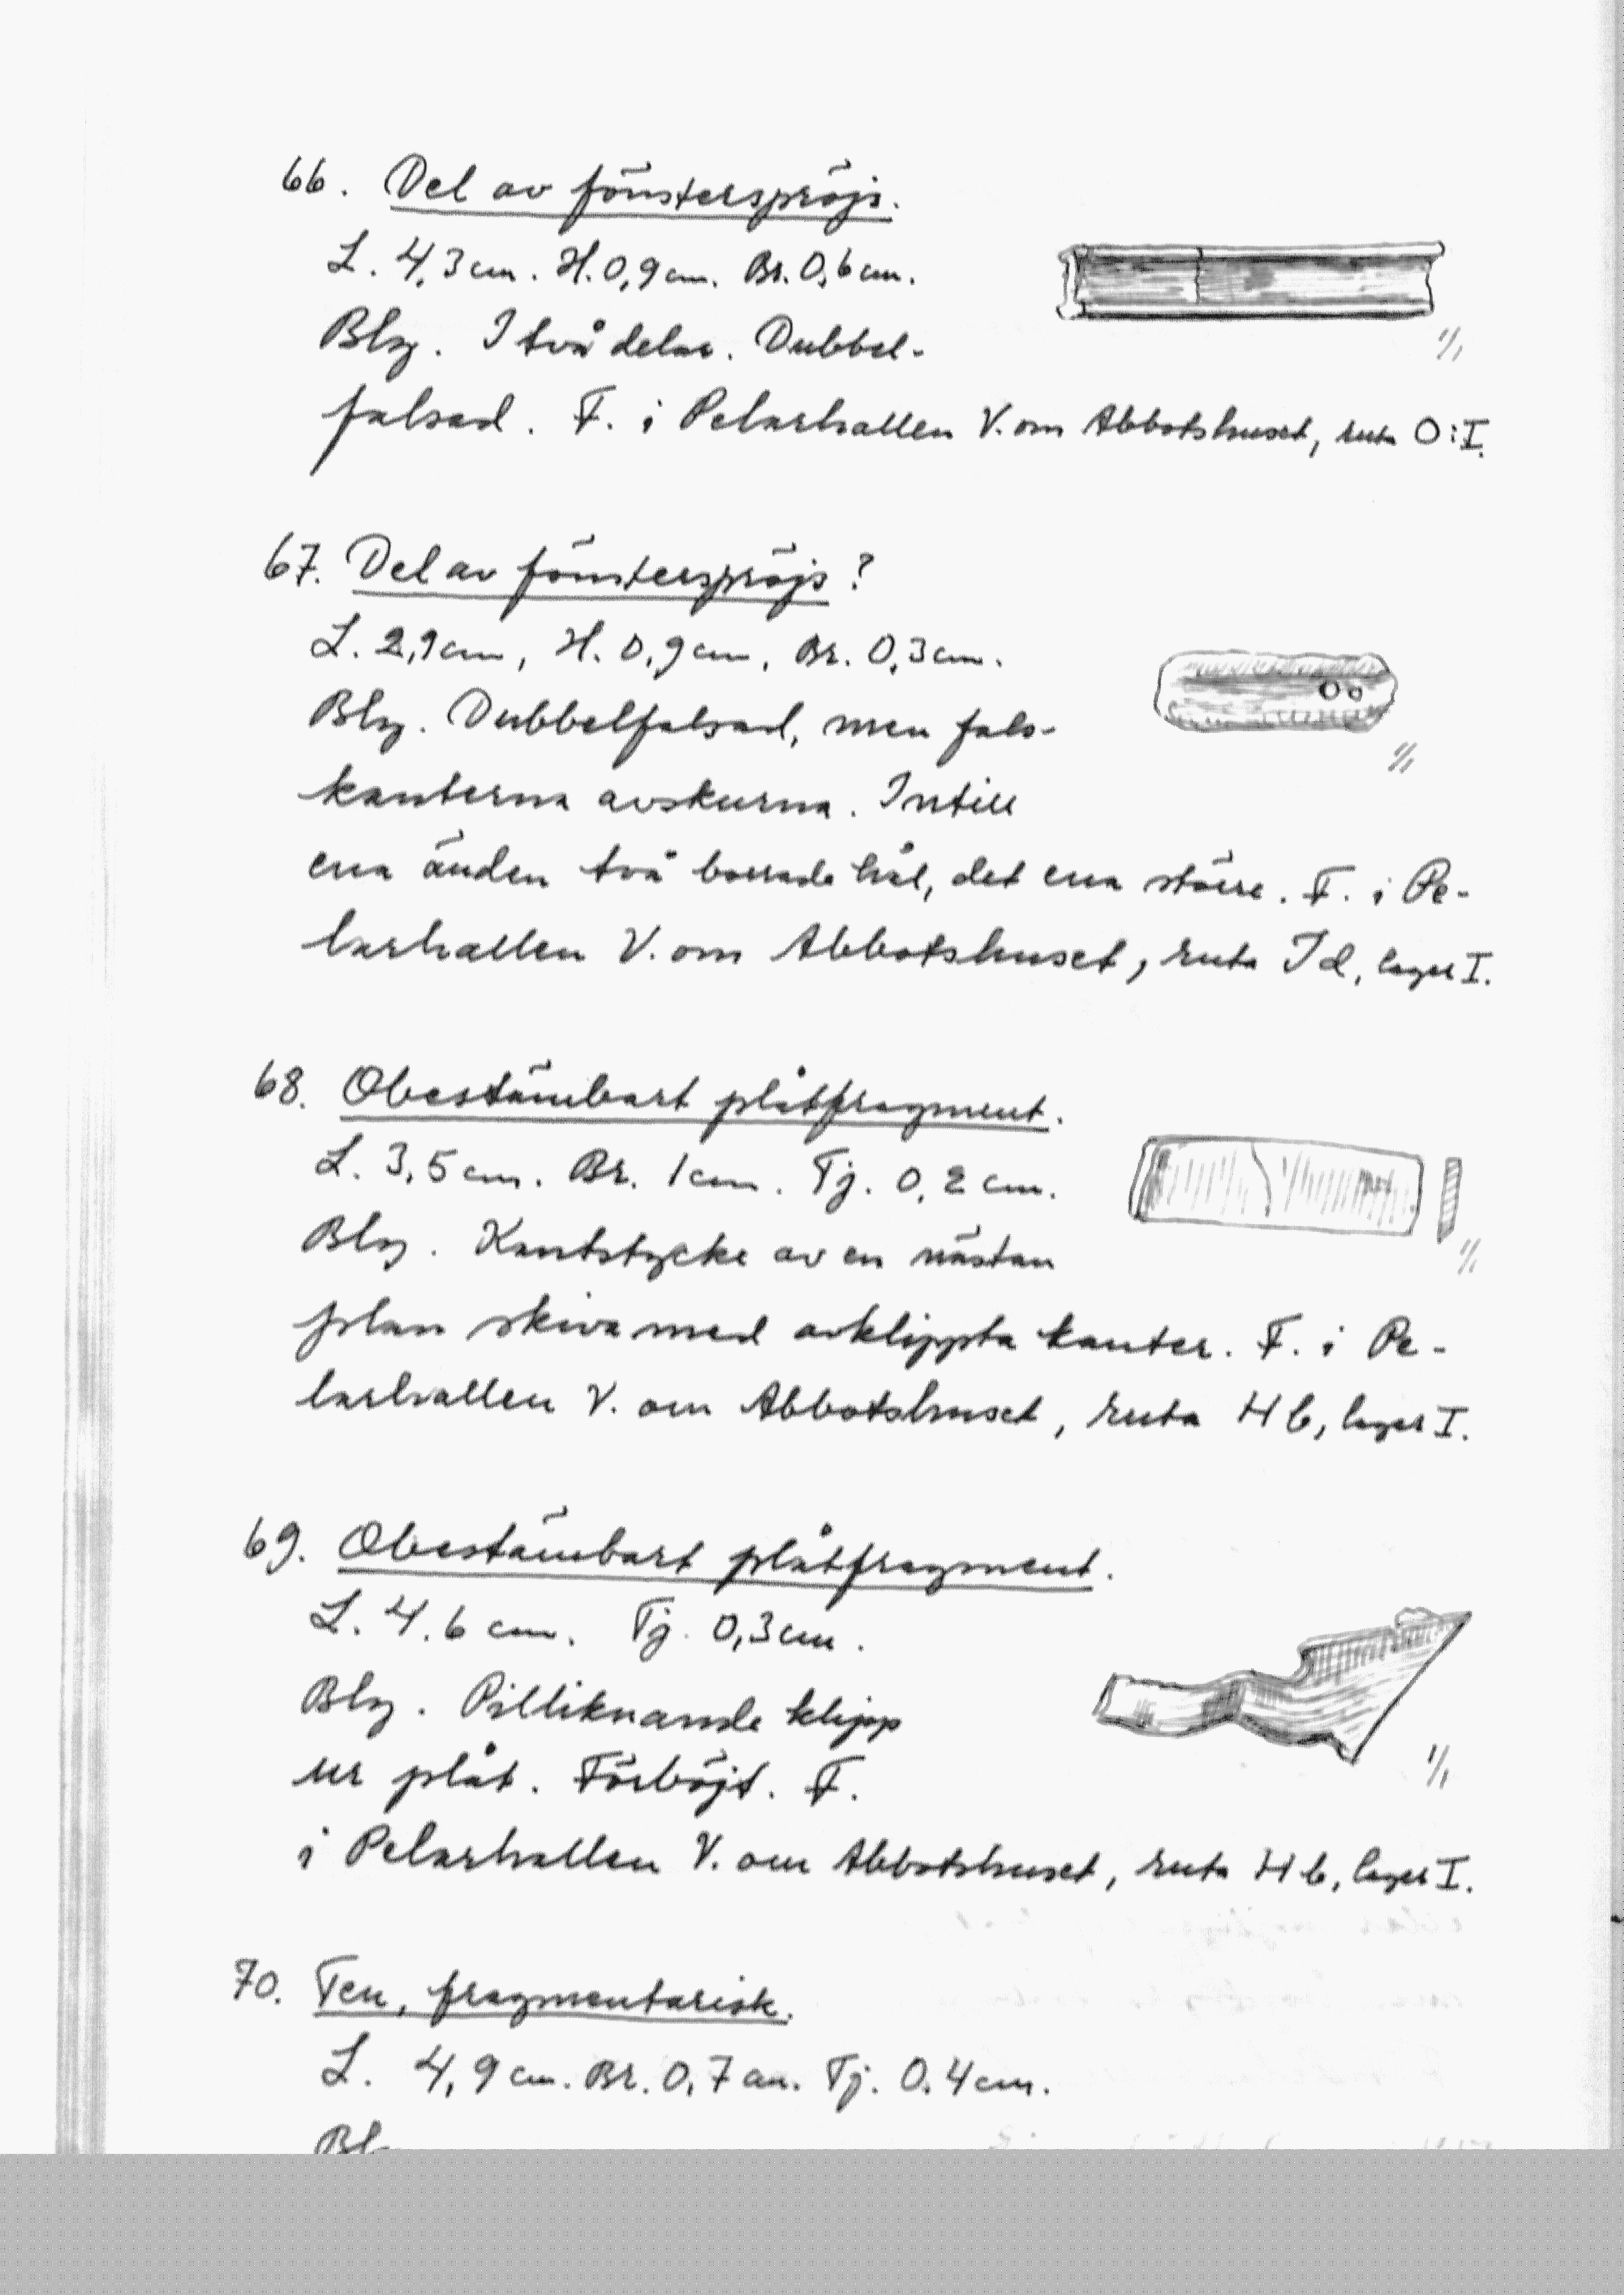 66. Del av fönsterspröjs.
L. 4,3 cm. H. 0,9 cm. Br. 0,6 cm.
Bly. I två delar. Dubbel-
1/1
falsad. F. i Pelarhallen V. om Abbotshuset, ruta O:I.
67. Del av fönsterspröjs?
L. 2,9 cm, H. 0,9 cm, Br. 0,3 cm.
Bly. Dubbelfalsad, men fals-
1/1
kanterna avskurna. Intill
ena änden två borrade hål, det ena större. F. i Pe-
larhallen V. om Abbotshuset, ruta Id, lager I.
68. Obestämbart plåtfragment.
L. 3,5 cm. Br. 1 cm. Tj. 0,2 cm.
Bly. Kantstycke av en nästan
1/1
plan skiva med avklippta kanter. F. i Pe-
larhallen V. om Abbotshuset, ruta Hb, lager I.
69. Obestämbart plåtfragment.
L. 4,6 cm. Tj. 0,3 cm.
Bly. Pilliknande klipp
ur plåt. Förböjt. F.
1/1
i Pelarhallen V. om Abbotshuset, ruta Hb, lager I.
70. Ten, fragmentarisk.
L. 4,9 cm. Br. 0,7 cm. Tj. 0,4 cm.